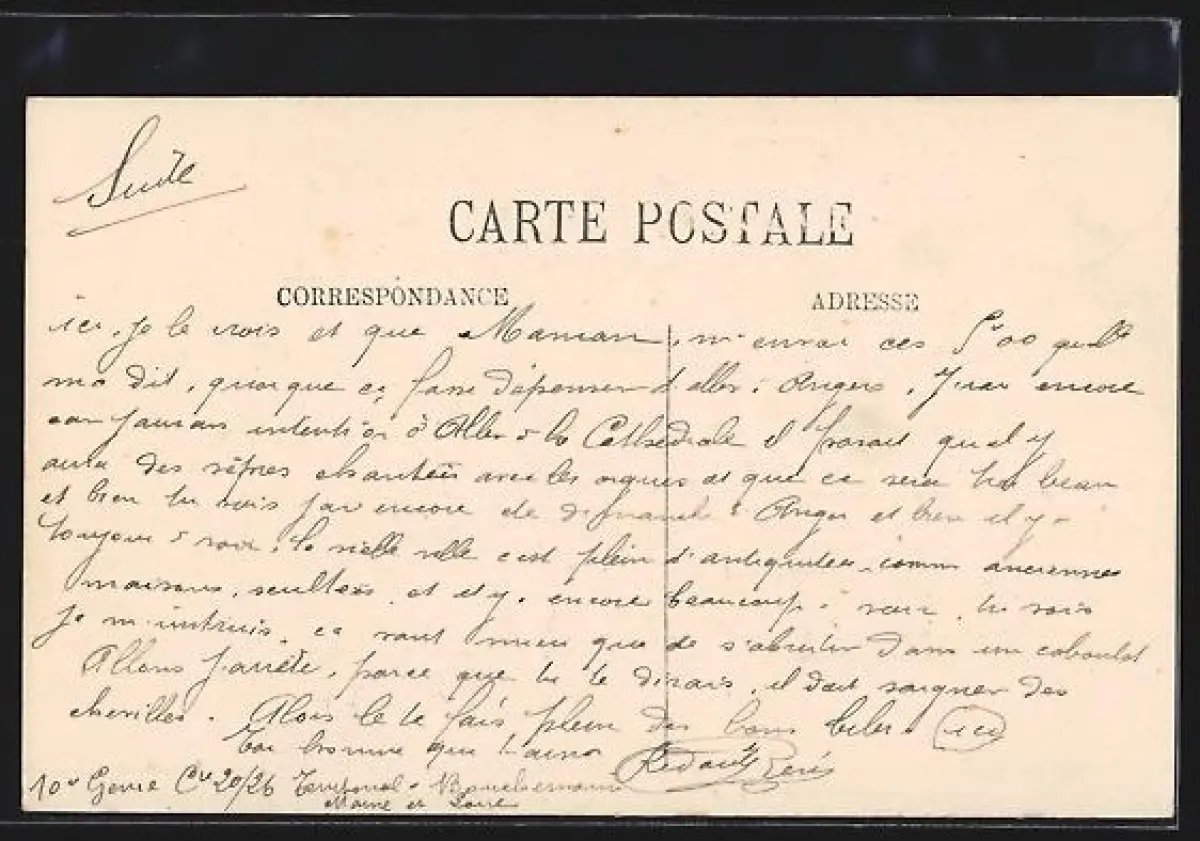 Suite
CARTE POSTALE
CORRESPONDANCE
ADRESSE
ici, je le crois et que Maman, m'envoi ces 5f00 quelle
ma dit, quoique ça fasse dépenser d'aller à Angers, J'irai encore
car j'aurais intention d'Aller à la Cathédrale il parait quel y
aura des vêpres chantées avec les orgues et que ce sera très beau
et bien tu vois j'ai encore dimanche à Angers et bien il y a
toujours à voir, la vieille ville c'est plein d'antiquitées comme anciennes
maisons, scultées, et il y a encore beaucoup à voir, tu vois
Je m'instruis, ça vaut mieux que de s'abrutir dans un caboulot
Allons j'arrête, parce que tu te dirais, il doit soigner des
chevilles. Alors je te fais plein des bons bibis ici
Ton homme que t'aime
10e Génie Cie 20/26 Territorial à
Maine et Loire